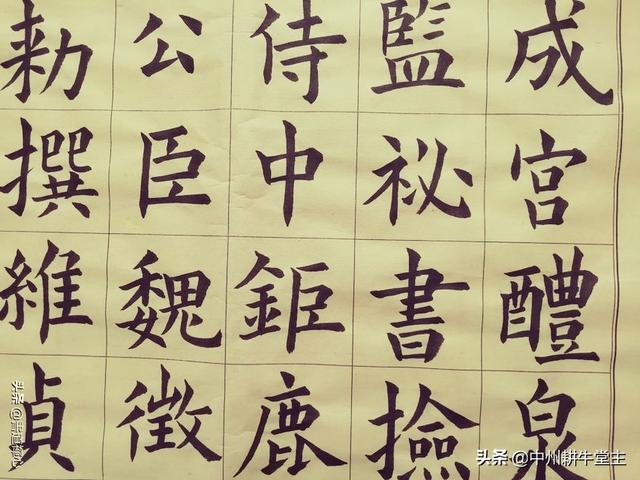 成宮醴泉
監祕書撿
侍中鉅鹿
公臣魏徵
勑撰維貞
头条 @中州耕牛堂主
头条